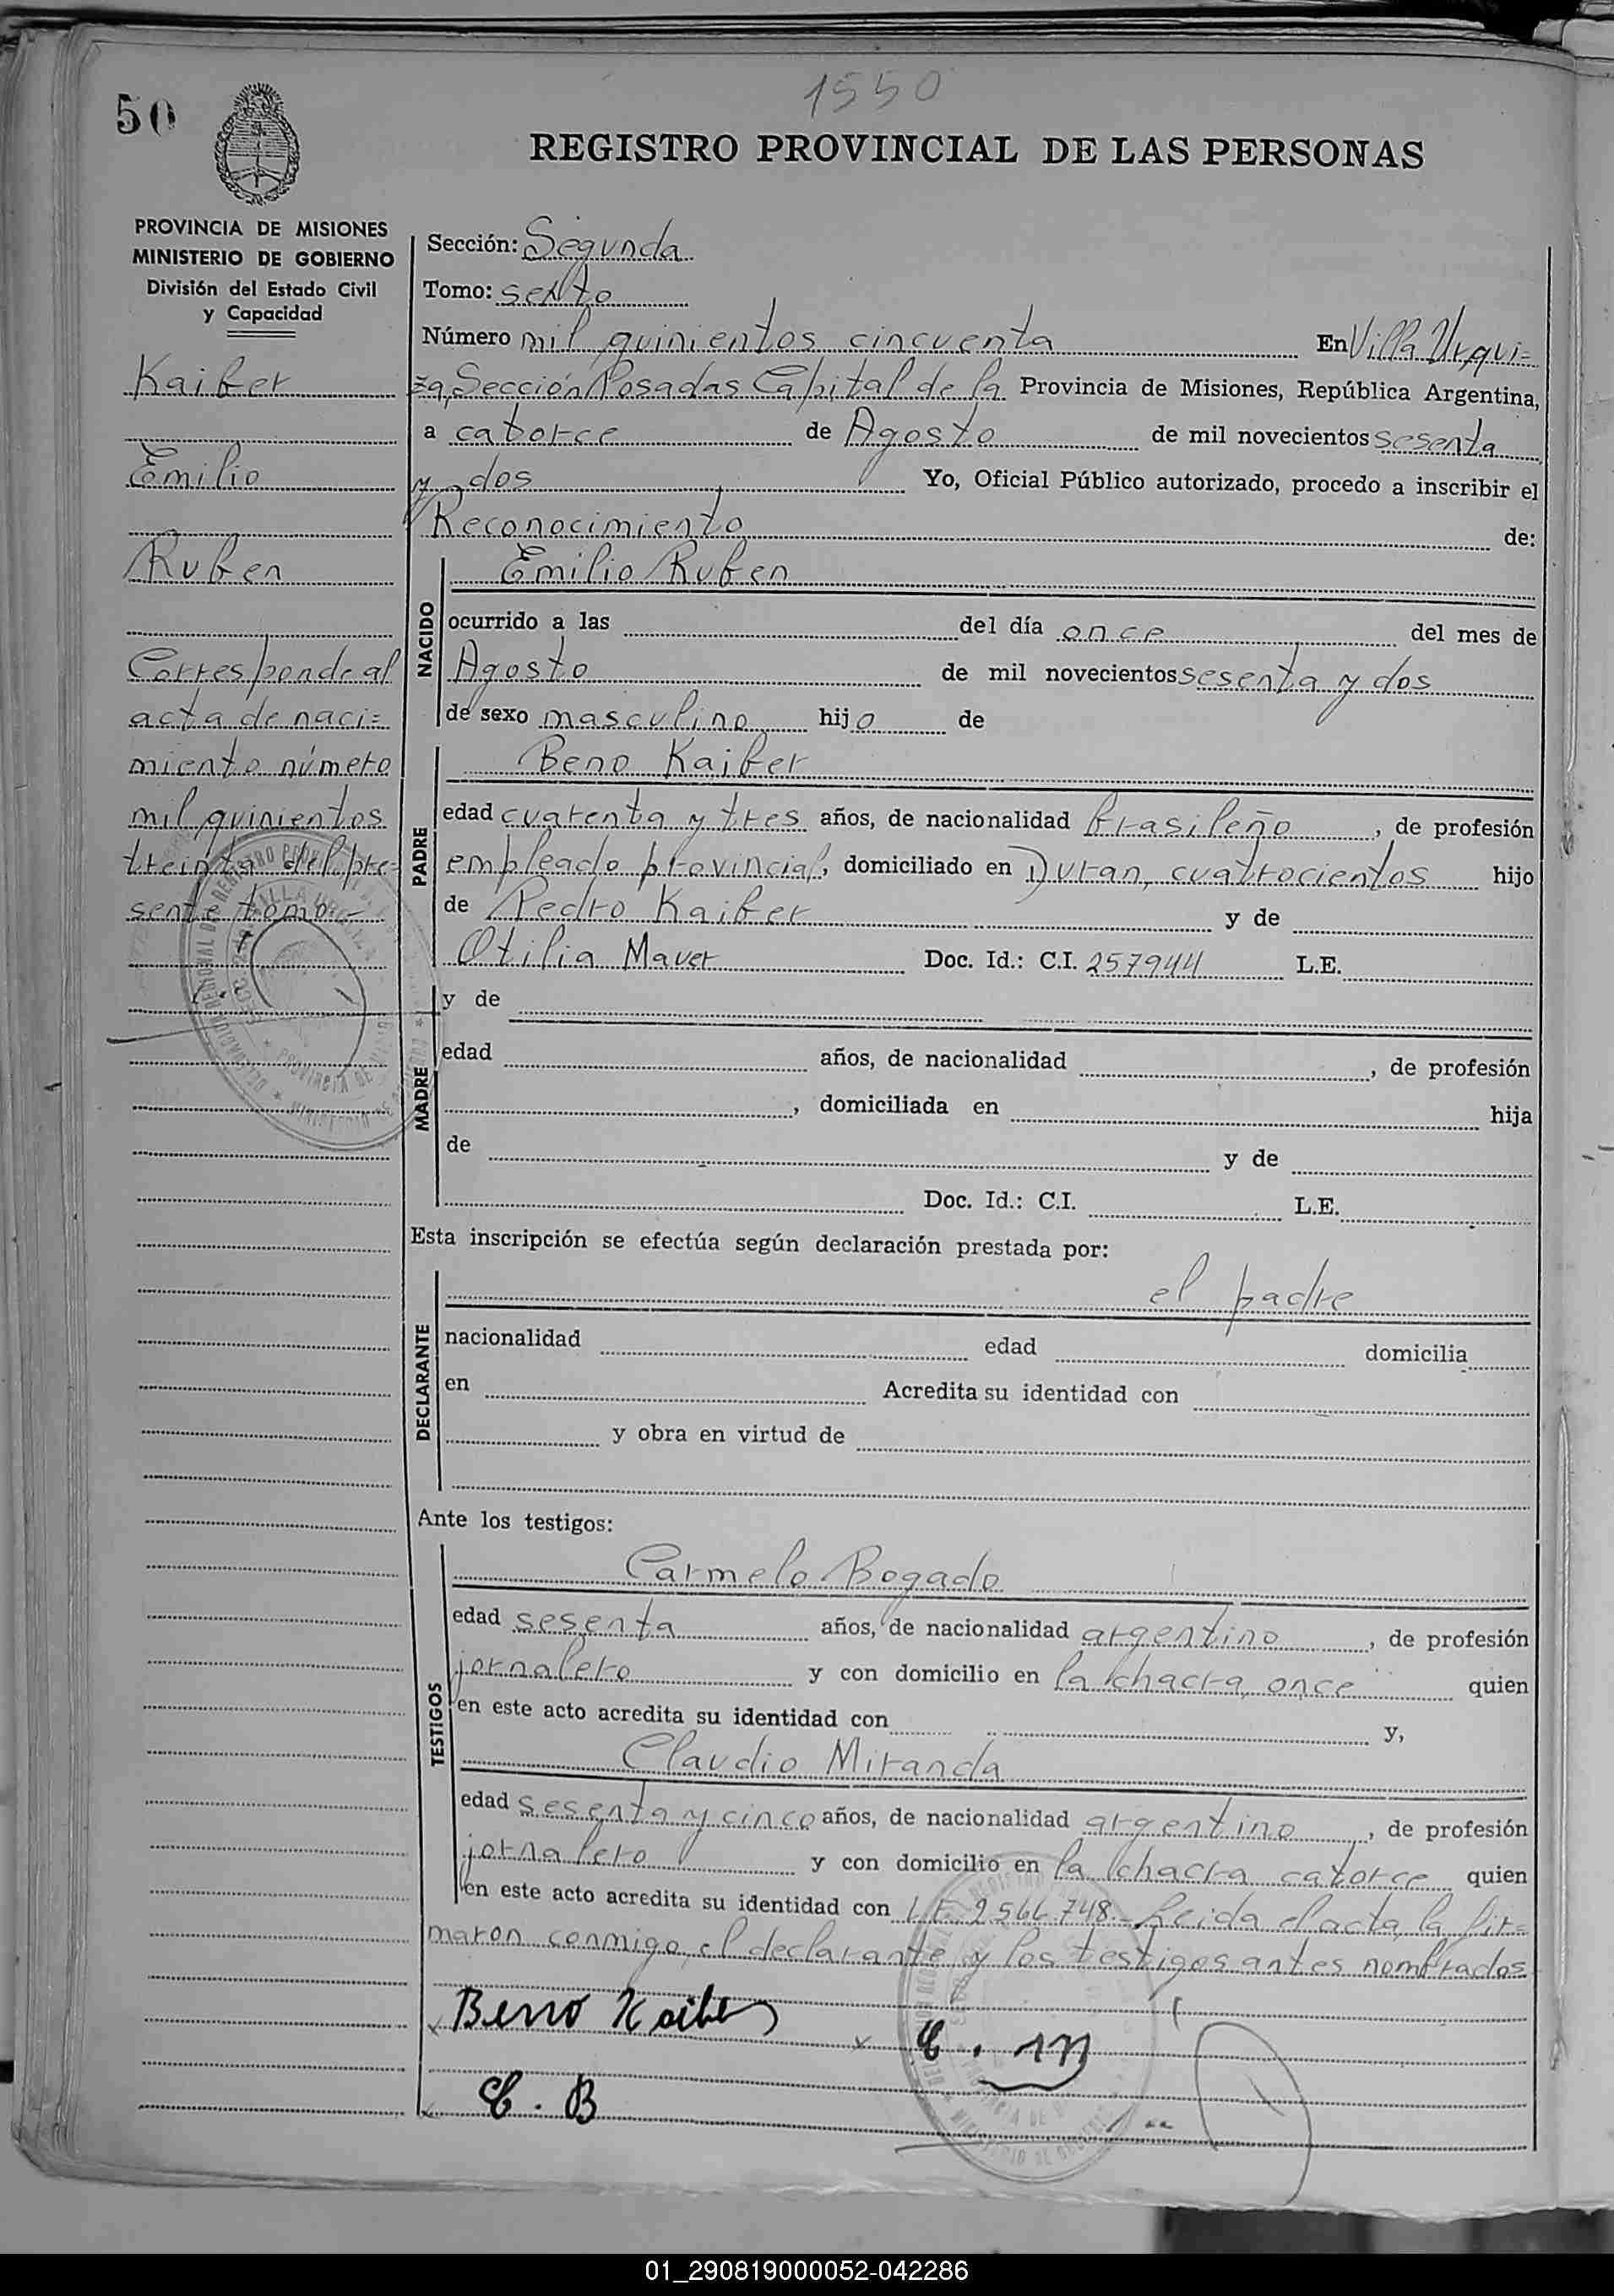 1550
50
REGISTRO PROVINCIAL DE LAS PERSONAS
PROVINCIA DE MISIONES
MINISTERIO DE GOBIERNO
División del Estado Civil
y Capacidad
Kaiber
Emilio
Ruben
Corresponde al
acta de naci=
miento número
mil quinientos
treinta del pre=
sente tomo.-
Sección: Segunda
Tomo: sexto
Número mil quinientos cincuenta En Villa Urqui=
za, Sección Posadas Capital de la Provincia de Misiones, República Argentina,
a catorce de Agosto de mil novecientos sesenta
y dos Yo, Oficial Público autorizado, procedo a inscribir el
Reconocimiento de:
NACIDO
Emilio Ruben
ocurrido a las del día once del mes de
Agosto de mil novecientos sesenta y dos
de sexo masculino hijo de
PADRE
Beno Kaiber
edad cuarenta y tres años, de nacionalidad brasileño, de profesión
empleado provincial, domiciliado en Duran, cuatrocientos hijo
de Pedro Kaiber y de
Otilia Maver Doc. Id.: C.I. 257944 L.E.
MADRE
y de
edad años, de nacionalidad , de profesión
, domiciliada en hija
de y de
Doc. Id.: C.I. L.E.
Esta inscripción se efectúa según declaración prestada por:
DECLARANTE
el padre
nacionalidad edad domicilia
en Acredita su identidad con
y obra en virtud de
Ante los testigos:
TESTIGOS
Carmelo Bogado
edad sesenta años, de nacionalidad argentino, de profesión
jornalero y con domicilio en la chacra once quien
en este acto acredita su identidad con y,
Claudio Miranda
edad sesenta y cinco años, de nacionalidad argentino, de profesión
jornalero y con domicilio en la chacra catorce quien
en este acto acredita su identidad con L.E. 2.566.748.- Leida el acta, la fir=
maron conmigo, el declarante y los testigos antes nombrados
Beno Kaiber
C. M
C. B
01_290819000052-042286